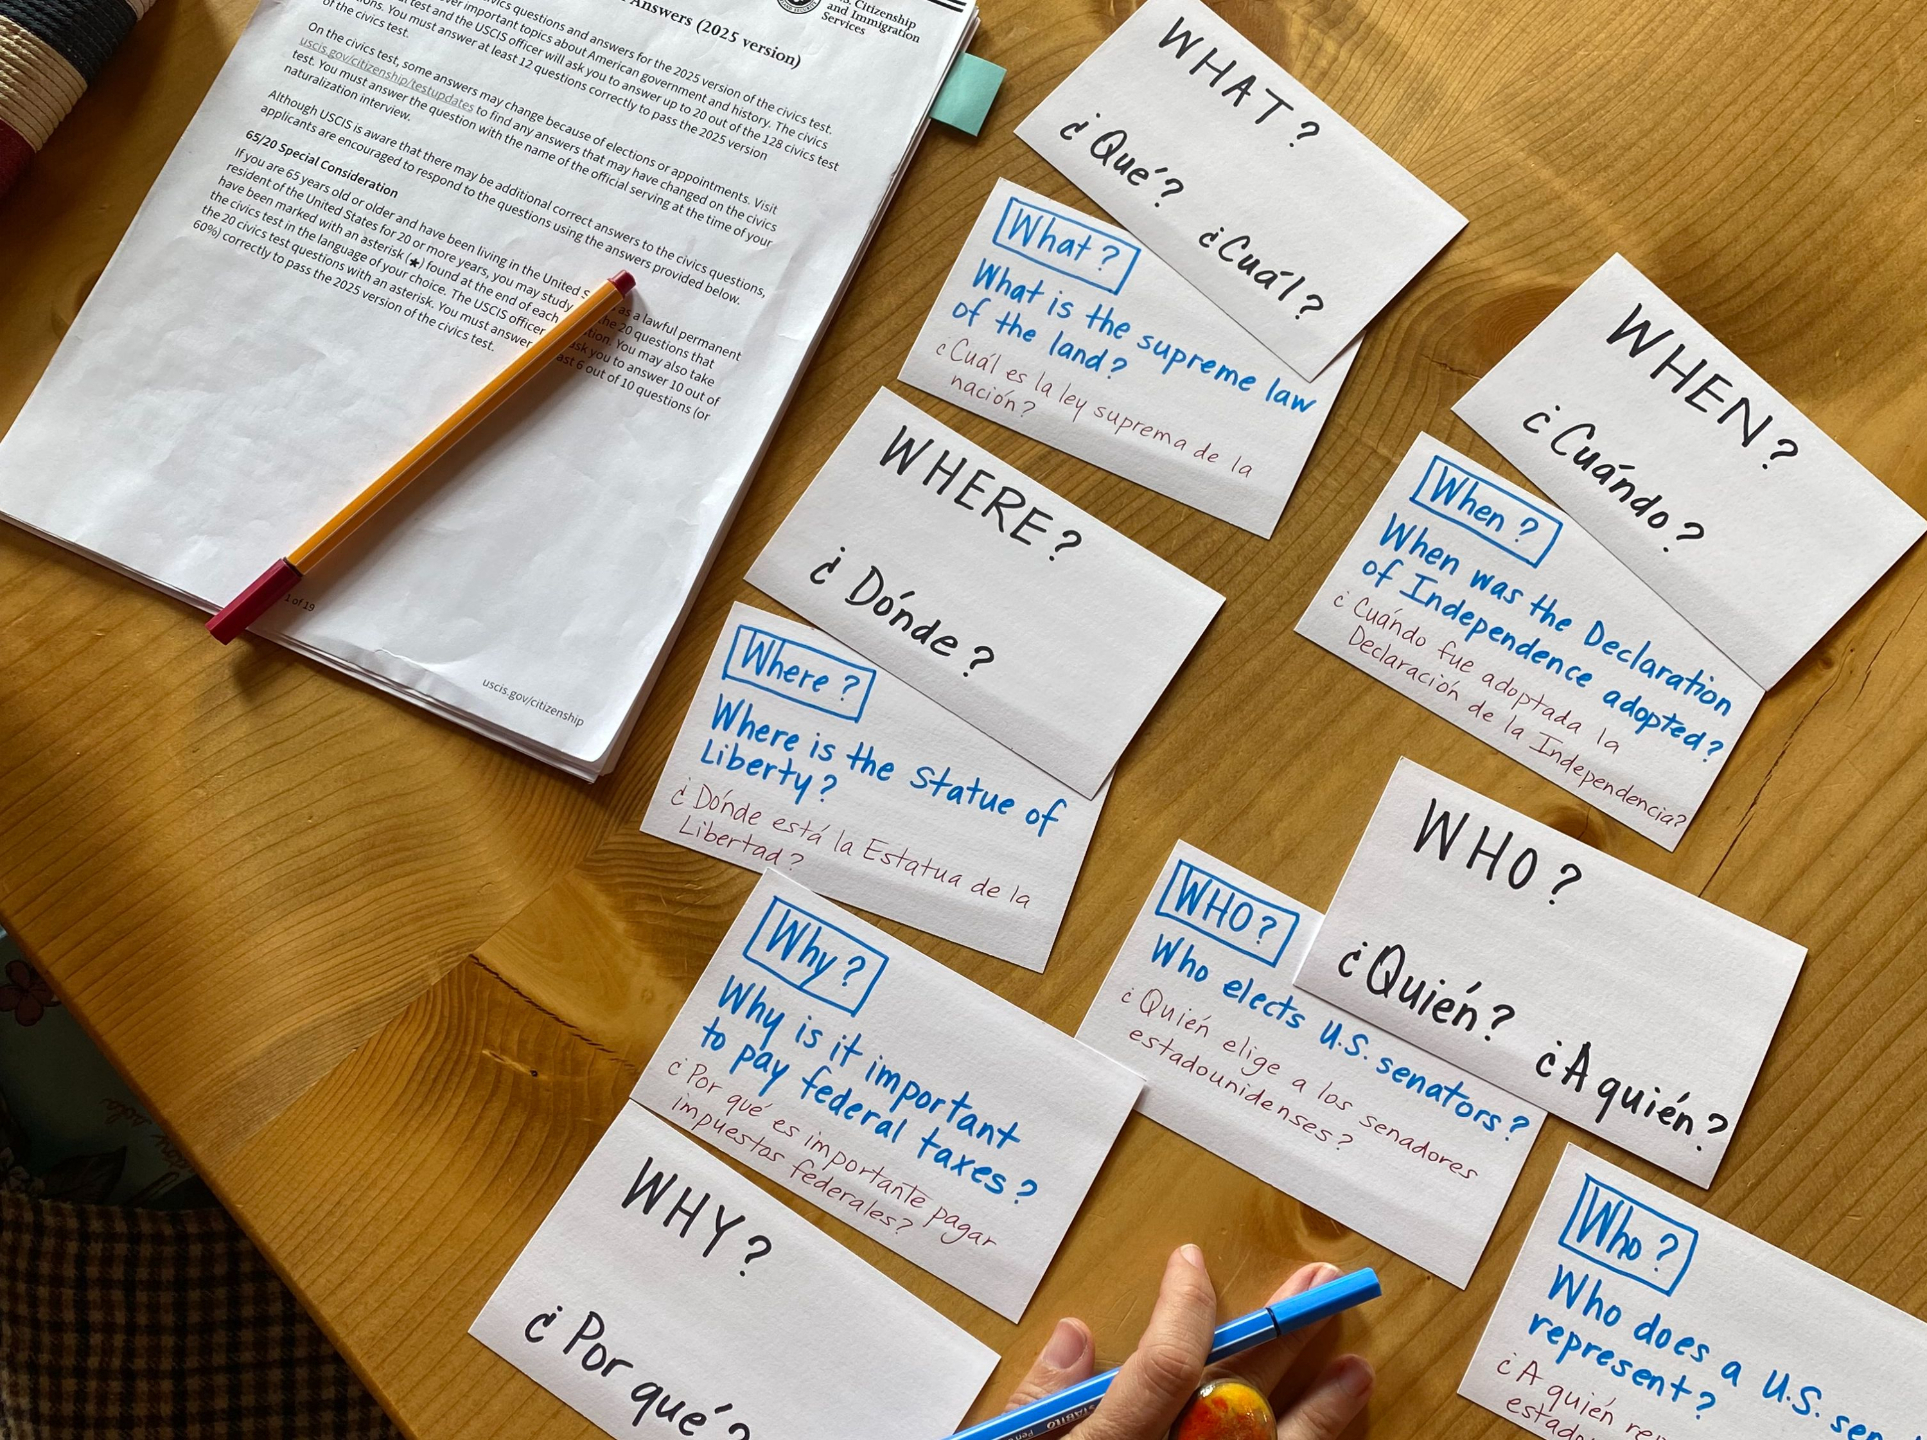 Answers (2025 version)
Citizenship
and Immigration
Services
civics questions and answers for the 2025 version of the civics test.
cover important topics about American government and history. The civics
test and the USCIS officer will ask you to answer up to 20 out of the 128 civics test
You must answer at least 12 questions correctly to pass the 2025 version
of the civics test.
On the civics test, some answers may change because of elections or appointments. Visit
uscis.gov/citizenship/testupdates to find any answers that may have changed on the civics
test. You must answer the question with the name of the official serving at the time of your
naturalization interview.
Although USCIS is aware that there may be additional correct answers to the civics questions,
applicants are encouraged to respond to the questions using the answers provided below.
65/20 Special Consideration
If you are 65 years old or older and have been living in the United S as a lawful permanent
resident of the United States for 20 or more years, you may study the 20 questions that
have been marked with an asterisk (★) found at the end of each You may also take
the civics test in the language of your choice. The USCIS officer ask you to answer 10 out of
the 20 civics test questions with an asterisk. You must answer 6 out of 10 questions (or
60%) correctly to pass the 2025 version of the civics test.
1 of 19
uscis.gov/citizenship
WHAT?
¿Qué?
¿Cuál?
What?
What is the supreme law
of the land?
¿Cuál es la ley suprema de la
nación?
WHEN?
¿Cuándo?
When?
When was the Declaration
of Independence adopted?
¿Cuándo fue adoptada la
Declaración de la Independencia?
WHERE?
¿Dónde?
Where?
Where is the Statue of
Liberty?
¿Dónde está la Estatua de la
Libertad?
WHO?
¿Quién?
¿A quién?
WHO?
Who elects U.S. senators?
¿Quién elige a los senadores
estadounidenses?
Why?
Why is it important
to pay federal taxes?
¿Por qué es importante pagar
impuestos federales?
WHY?
¿Por qué?
Who?
Who does a U.S. sen
represent?
¿A quién rep
estado
STABILO
Pen